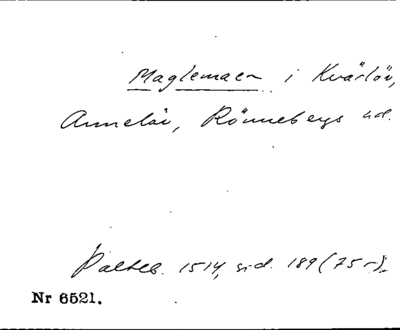 Maglemaen i Kvärlöv,
Annelöv, Rönnebergs hd.
Palteb. 1514, sid. 189 (75 r).
Nr 6521.